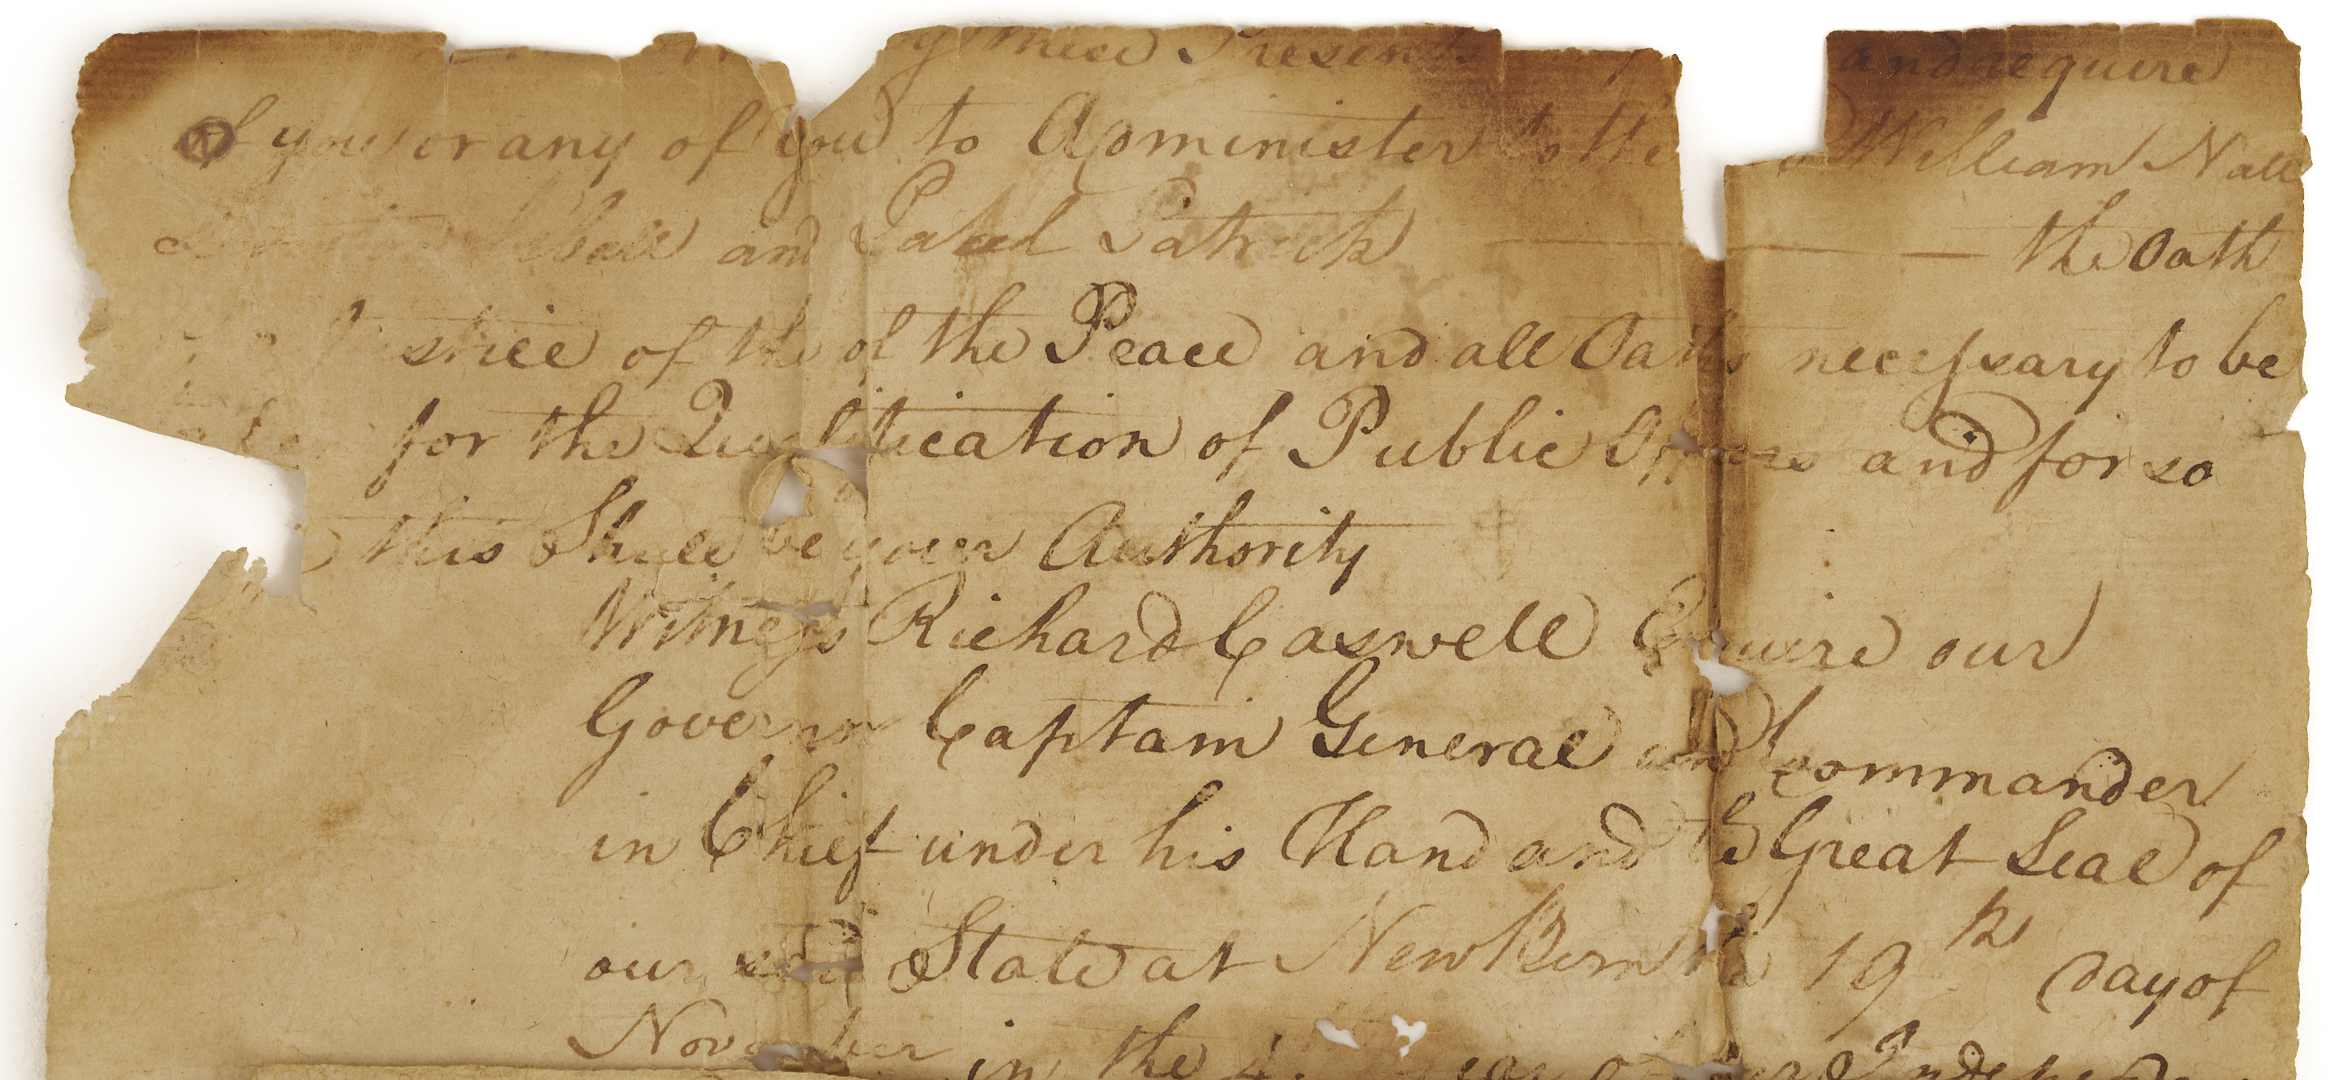 these Presents and require
of you or any of you to Administer to the William Nall
and Patrick the Oath
Justice of the of the Peace and all Oaths necessary to be
for the Qualification of Public Officers and for so
this Shall be your Authority
Witness Richard Caswell Esquire our
Governor Captain General and Commander
in Chief under his Hand and the Great Seal of
our said State at NewBern the 19th day of
November in the year of our Independence